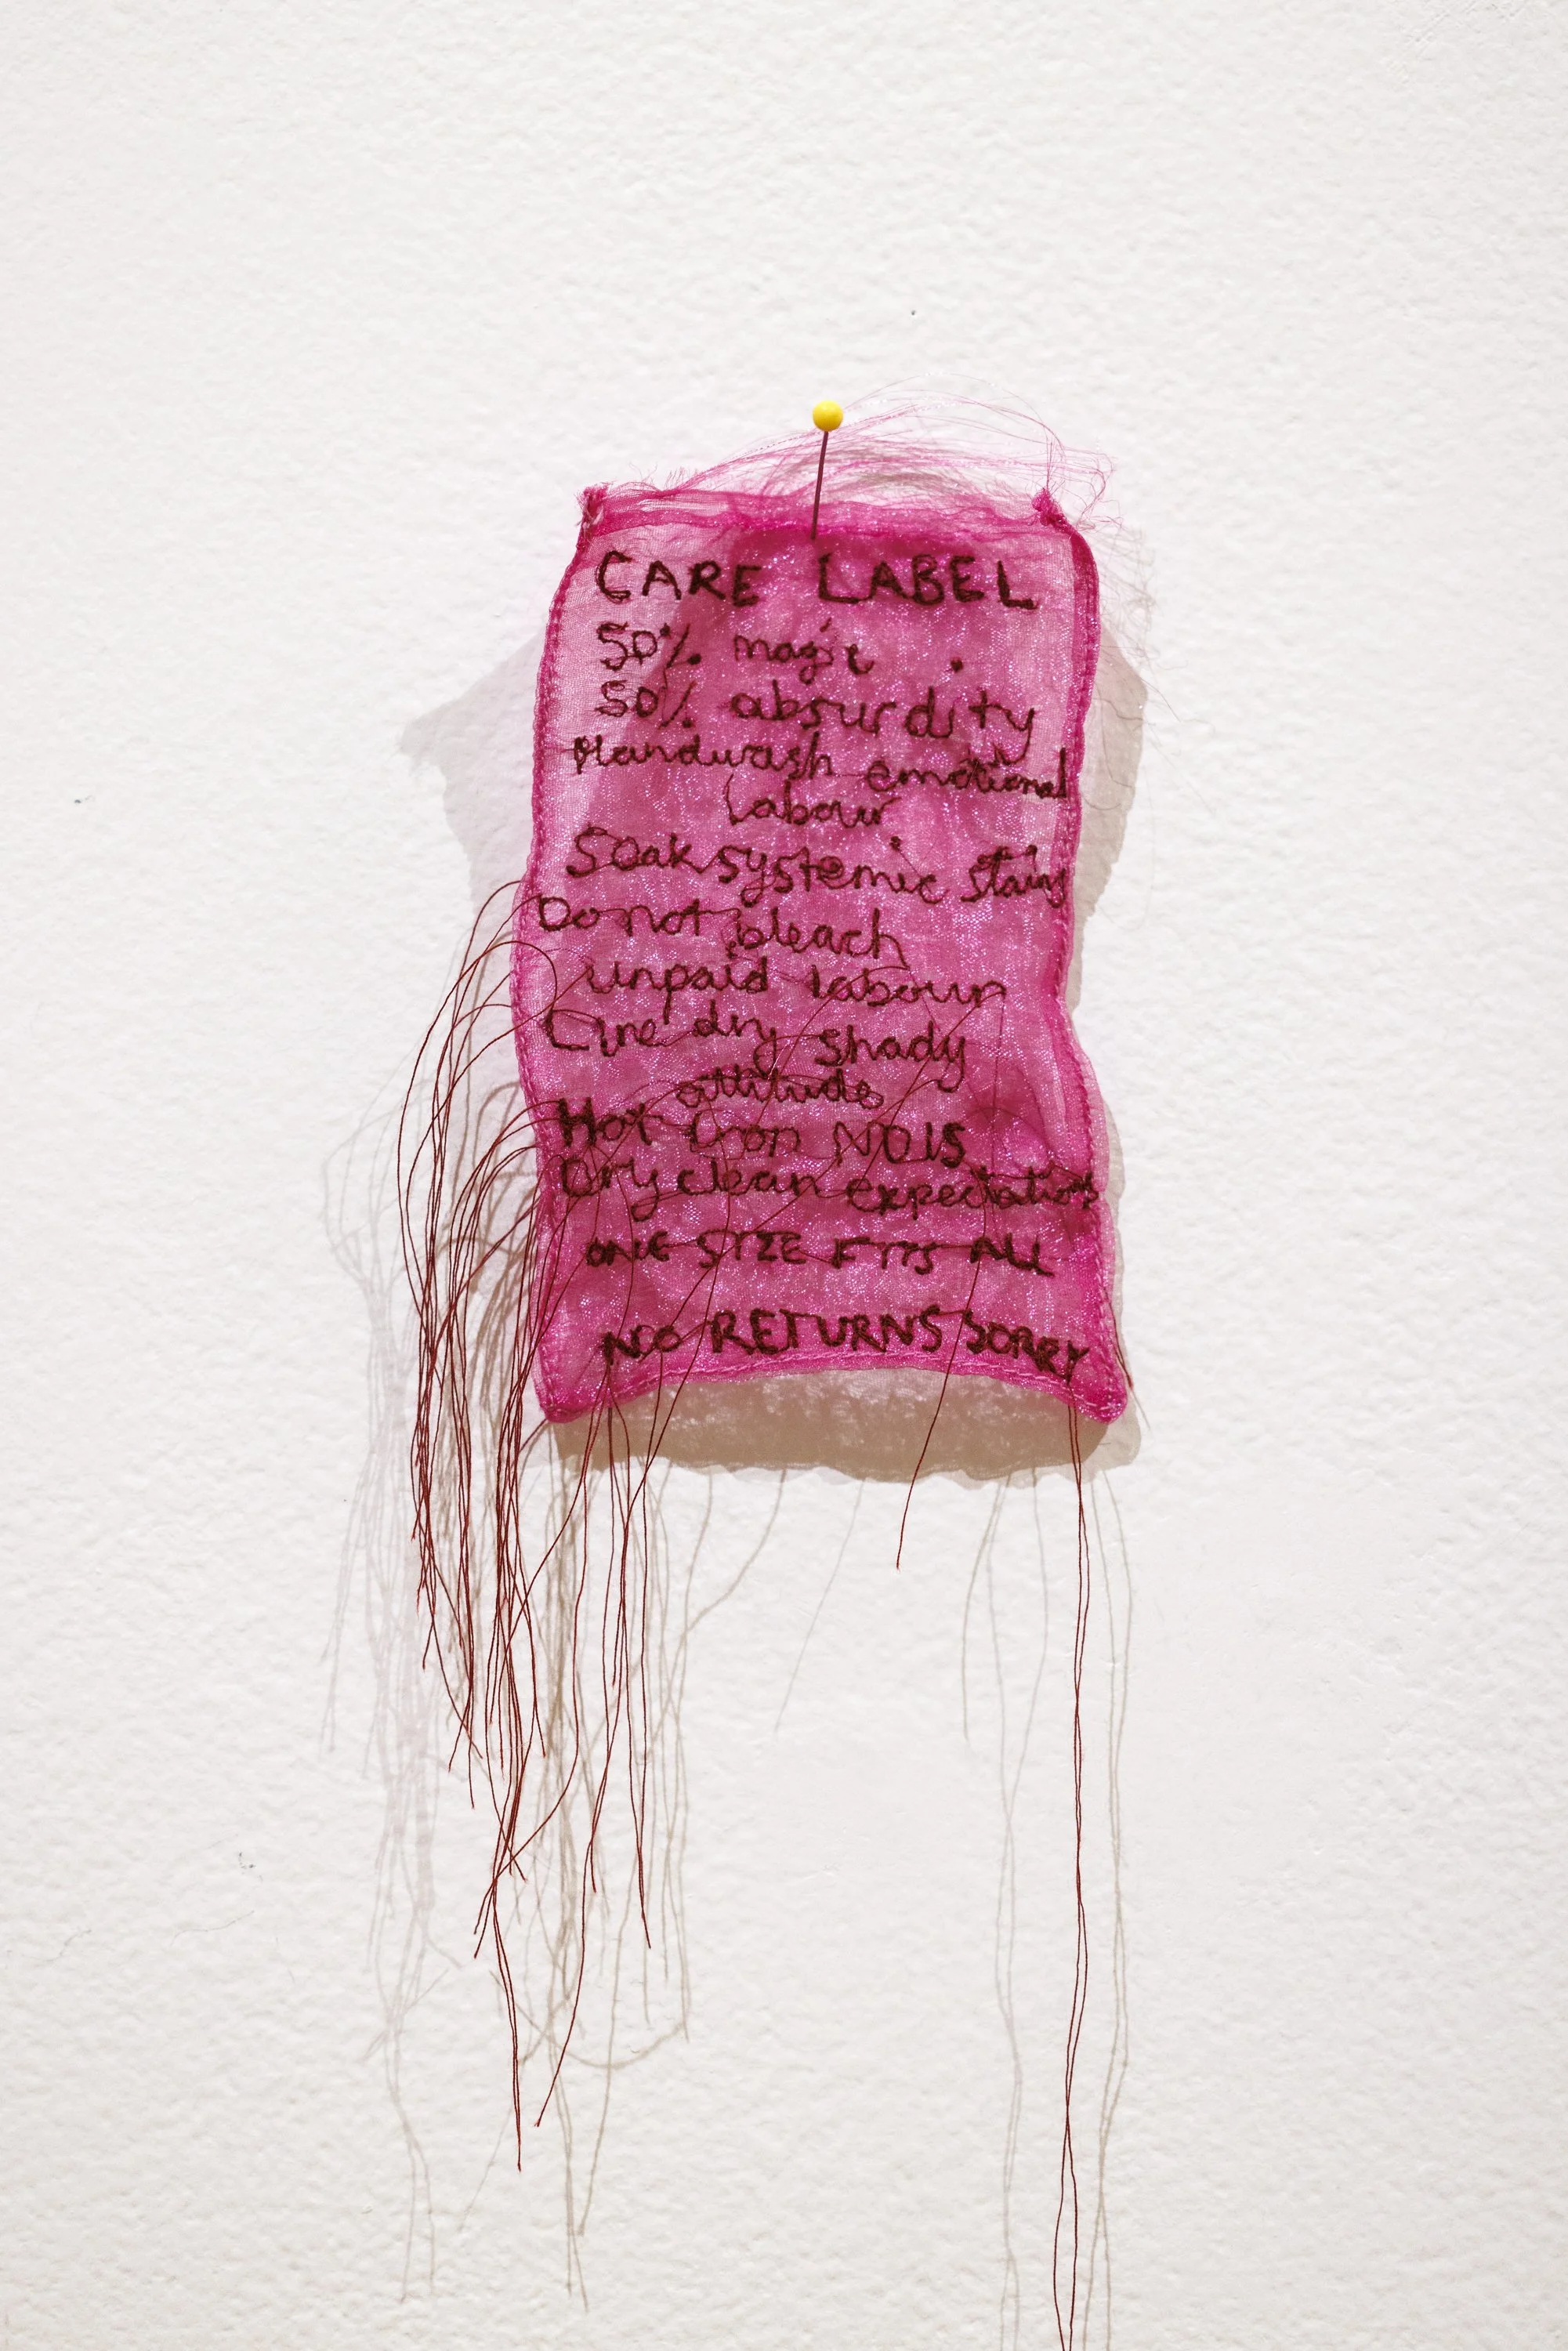 CARE LABEL
50% magic
50% absurdity
Handwash emotional
labour
Soak systemic stains
Do not bleach
unpaid labour
Line dry shady
attitude
Hot iron NDIS
Dry clean expectations
ONE SIZE FITS ALL
NO RETURNS SORRY